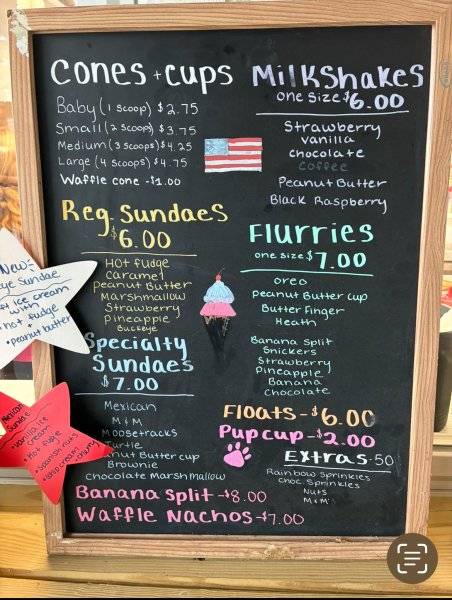 Cones + Cups
Baby (1 scoop) $2.75
Small (2 scoops) $3.75
Medium (3 scoops) $4.25
Large (4 scoops) $4.75
Waffle cone - $1.00
Reg. Sundaes
$6.00
Hot fudge
Caramel
Peanut Butter
Marshmallow
Strawberry
Pineapple
Buckeye
Specialty
Sundaes
$7.00
Mexican
M+M
Moosetracks
Turtle
Peanut Butter cup
Brownie
Chocolate Marshmallow
Banana Split - $8.00
Waffle Nachos - $7.00
Milkshakes
one size $6.00
Strawberry
Vanilla
Chocolate
Coffee
Peanut Butter
Black Raspberry
Flurries
one size $7.00
Oreo
Peanut Butter Cup
Butter Finger
Heath
Banana Split
Snickers
Strawberry
Pineapple
Banana
Chocolate
Floats - $6.00
Pup cup - $2.00
Extras .50
Rainbow Sprinkles
Choc. Sprinkles
Nuts
M+M
New:
ye Sundae
ice cream
with
hot fudge
+
peanut butter
Mexican
Sundae
Vanilla ice
cream
Hot fudge
Spanish nuts
cherry